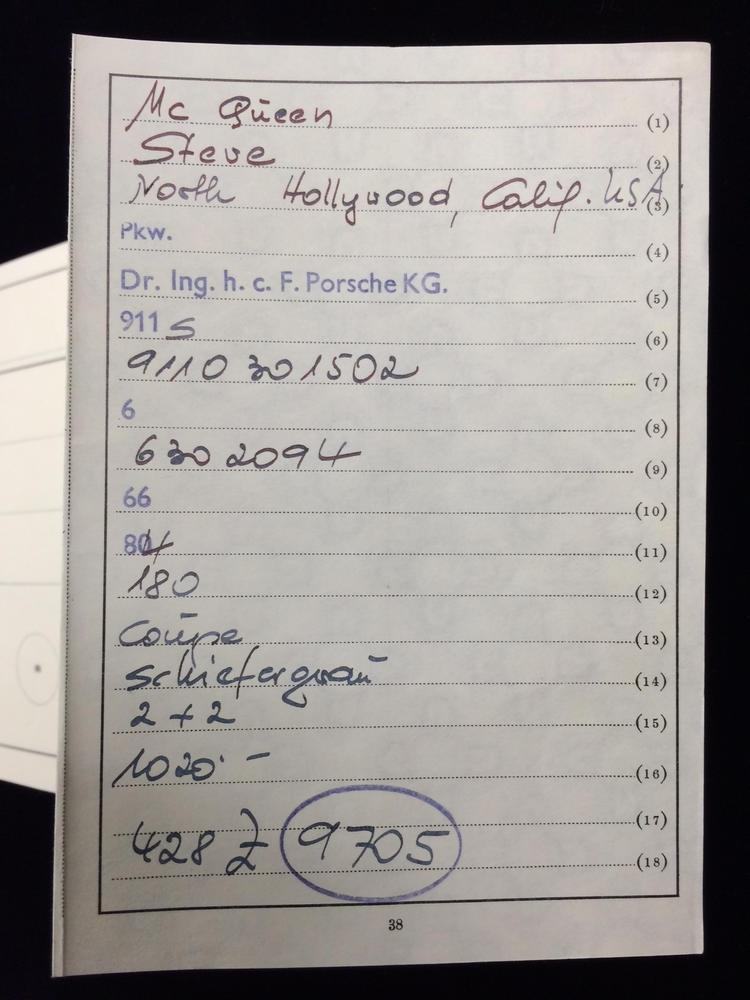 Mc Queen (1)
Steve (2)
North Hollywood, Calif. USA (3)
Pkw. (4)
Dr. Ing. h. c. F. Porsche KG. (5)
911 S (6)
9110 301502 (7)
6 (8)
630 2094 (9)
66 (10)
84 (11)
180 (12)
Coupe (13)
schiefergrau (14)
2 + 2 (15)
1020.- (16)
(17)
428 Z 9705 (18)
38